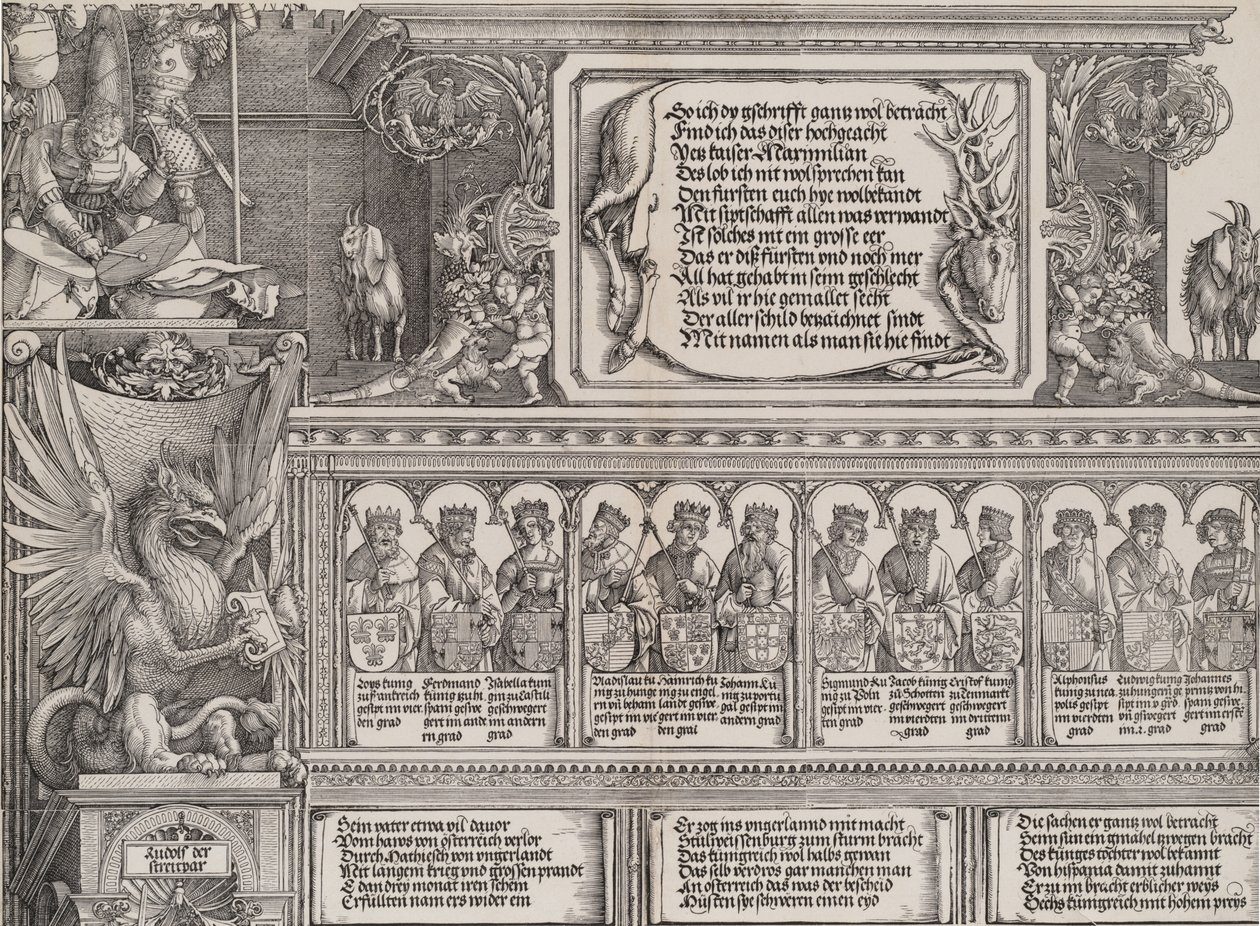 So ich dy gschrifft gantz wol betracht
Find ich das diser hochgeacht
Yetz kaiser Maximilian
Des lob ich nit wol sprechen kan
Den fursten euch hye wolbekandt
Mit siptschafft allen was verwandt
Ist solches nit ein grosse eer
Das er diß fursten vnd noch mer
All hat gehabt in seim geschlecht
Als vil ir hie gemallet secht
Der aller schild betzaichnet sindt
Mit namen als man sie hie findt
Loys kunig
zu frankreich
gesipt im vier
den grad
Ferdinand
kunig zu hi
spani geswe
gert im ande
rn grad
Ysabella kuni
gin zu Castili
geschwegert
im andern
grad
Vladislau ku
nig zu hunge
rn vn beham
gesipt im vie
den grad
Hainrich ku
nig zu engel
landt geswe
gert im vier
den grad
Johann ku
nig zu portu
gal gesipt im
andern grad
Sigmund ku
nig zu Poln
gesipt im vier
ten grad
Jacob kunig
zu Schotten
geschwegert
im vierdten
grad
Cristoff kunig
zu Tenmarkt
geschwegert
im dritten
grad
Alphonsus
kunig zu nea
polis gesipt
im vierdten
grad
Ludwig kunig
zu hungern ge
sipt im
vn gswegert
im .2. grad
Johannes
printz von hi
spani geswe
gert im erste
grad
Rudolf der
streitpar
Sein vater etwa vil davor
Vom haws von osterreich verlor
Durch Mathiesch von vngerlandt
Mit langem krieg vnd grossen prandt
E dan drey monat iren schein
Erfullten nam ers wider ein
Er zog ins vngerlannd mit macht
Stulweissenburg zum sturm bracht
Das kungreich wol halbs gewan
Das selb verdros gar manchen man
An osterreich das was der bescheid
Musten sye schweren einen eyd
Die sachen er gantz wol betracht
Seim sun ein gmahel zwegen bracht
Des kunges tochter wol bekannt
Von hispania damit zuhannt
Er zu im bracht erblicher weys
Sechs kungreich mit hohem preys